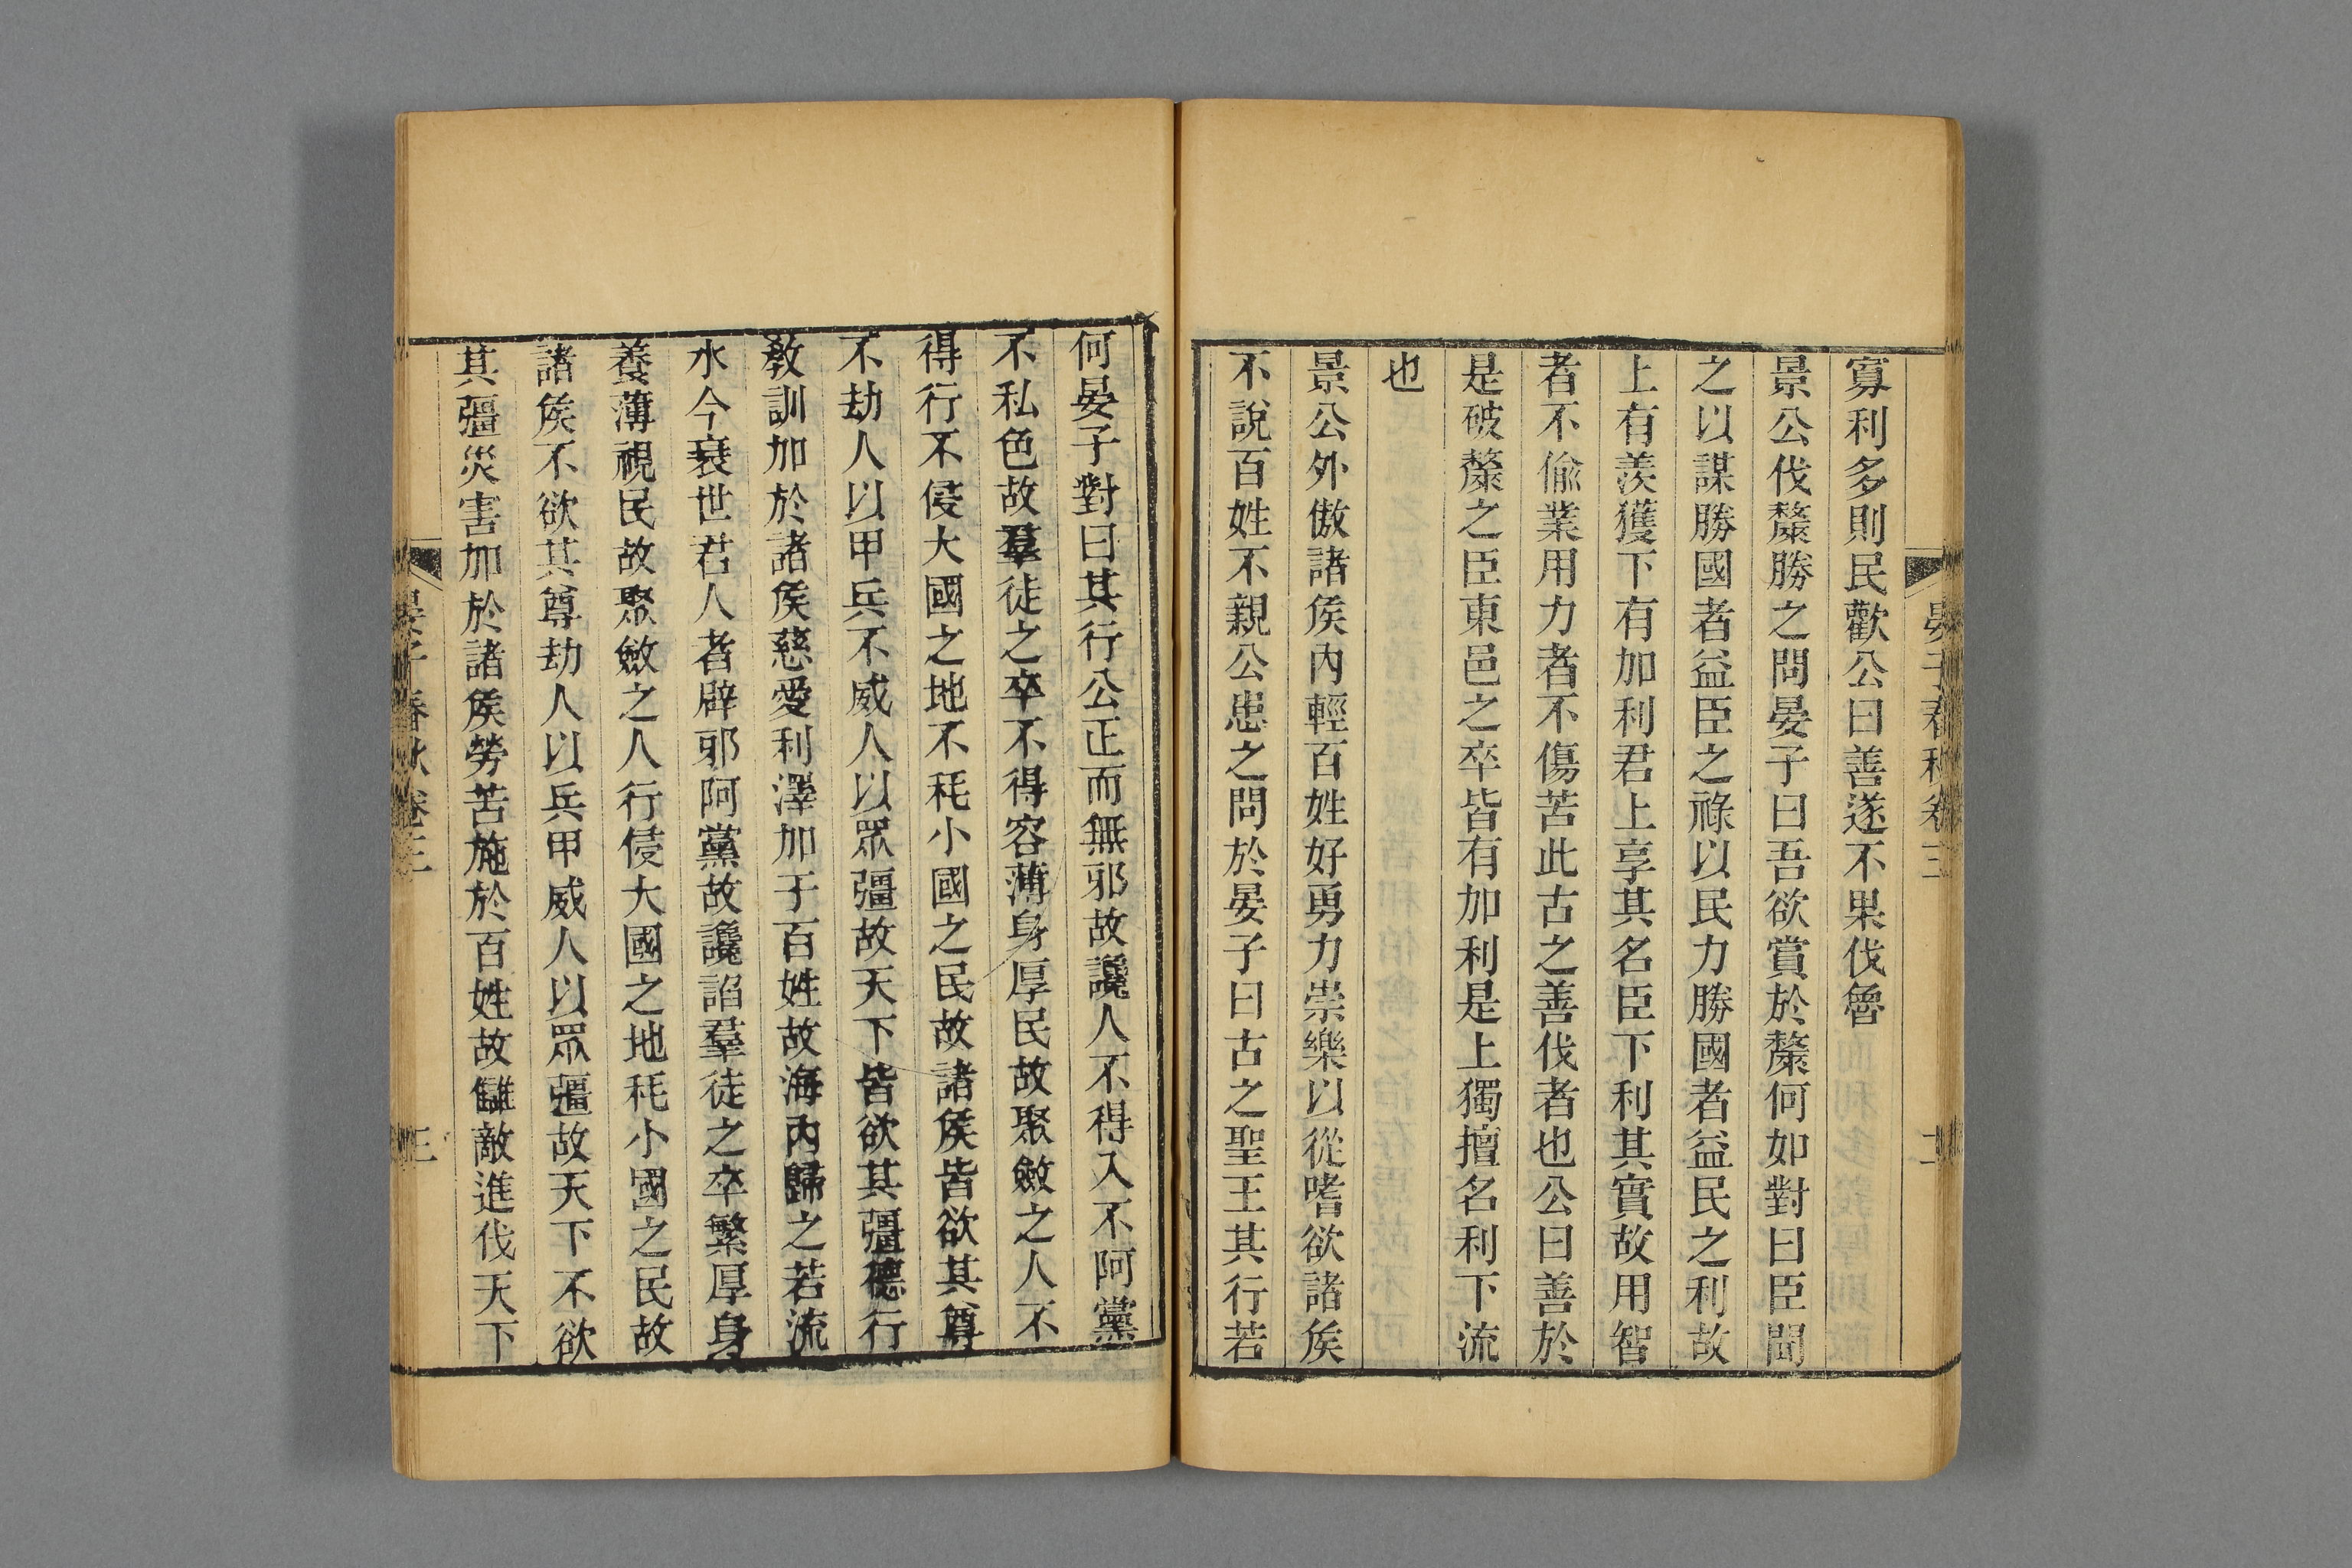 寡利多則民歡公曰善遂不果伐魯
景公伐斄勝之問晏子曰吾欲賞於斄何如對曰臣聞
之以謀勝國者益臣之祿以民力勝國者益民之利故
上有羨獲下有加利君上享其名臣下利其實故用智
者不偷業用力者不傷苦此古之善伐者也公曰善於
是破斄之臣東邑之卒皆有加利是上獨擅名利下流
也
景公外傲諸矦內輕百姓好勇力崇樂以從嗜欲諸矦
不說百姓不親公患之問於晏子曰古之聖王其行若
何晏子對曰其行公正而無邪故讒人不得入不阿黨
不私色故羣徒之卒不得容薄身厚民故聚斂之人不
得行不侵大國之地不秏小國之民故諸矦皆欲其尊
不劫人以甲兵不威人以眾彊故天下皆欲其彊德行
敎訓加於諸矦慈愛利澤加于百姓故海內歸之若流
水今衰世君人者辟邪阿黨故讒諂羣徒之卒繁厚身
養薄視民故聚斂之人行侵大國之地秏小國之民故
諸矦不欲其尊劫人以兵甲威人以眾彊故天下不欲
其彊災害加於諸矦勞苦施於百姓故讎敵進伐天下
晏子春秋卷三
三